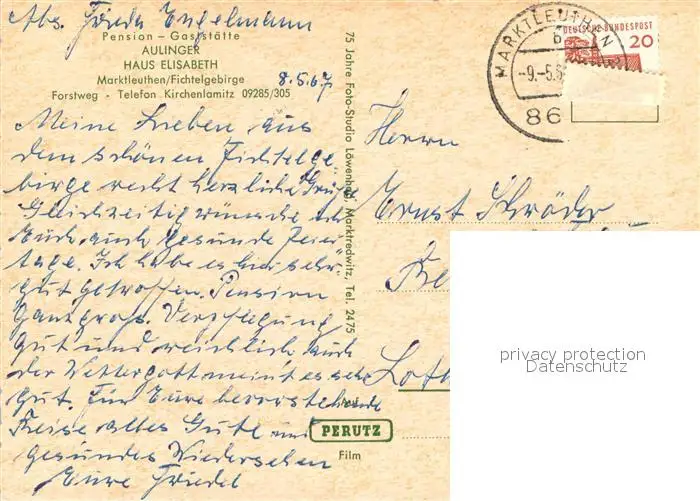 Abs. Frieda Engelmann
Pension – Gaststätte
AULINGER
HAUS ELISABETH
Marktleuthen/Fichtelgebirge
8.5.67
Forstweg - Telefon Kirchenlamitz 09285/305
Meine Lieben, aus
dem schönen Fichtelge
birge recht herzliche Grüße
Gleichzeitig wünsche ich
Euch auch gesunde Feier
tage. Ich habe es hier sehr
gut getroffen. Pension
ganz gross. Verpflegung
gut und reichlich, auch
der Wettergott meint es sehr
gut. Für Eure bevorstehende
Reise alles Gute und
gesundes Wiedersehen
Eure Friedel
75 Jahre Foto-Studio Löwenhag, Marktredwitz, Tel. 2475
PERUTZ
Film
MARKTLEUTHEN
b
-9.-5.6
86
DEUTSCHE BUNDESPOST
20
Herrn
Ernst Schröder
privacy protection
Datenschutz